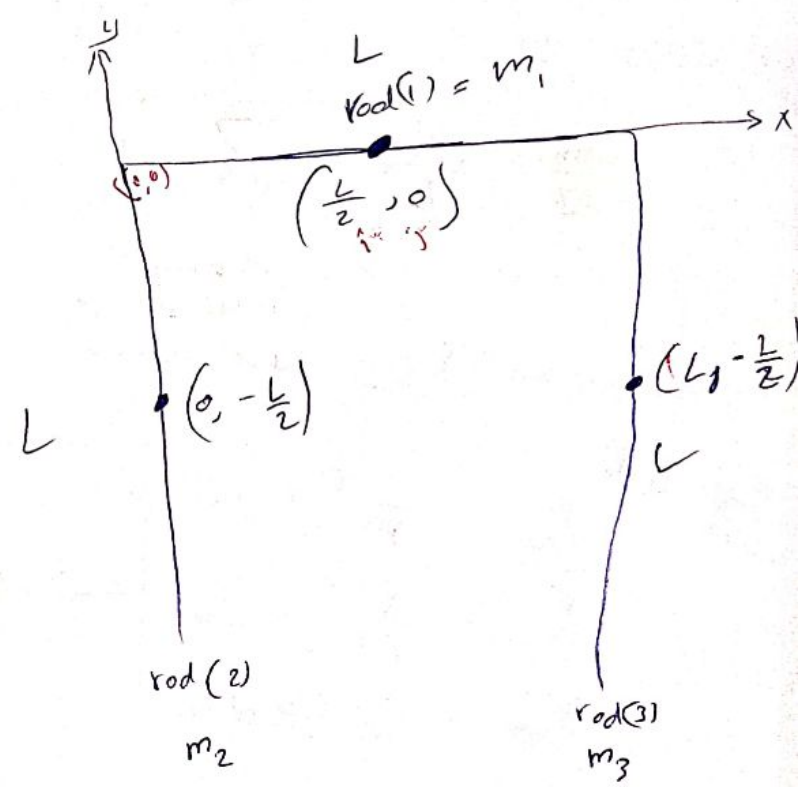 y
L
rod(1) = m₁
x
(0,0)
(L/2, 0)
î ĵ
(0, -L/2)
(L, -L/2)
L
L
rod(2)
m₂
rod(3)
m₃